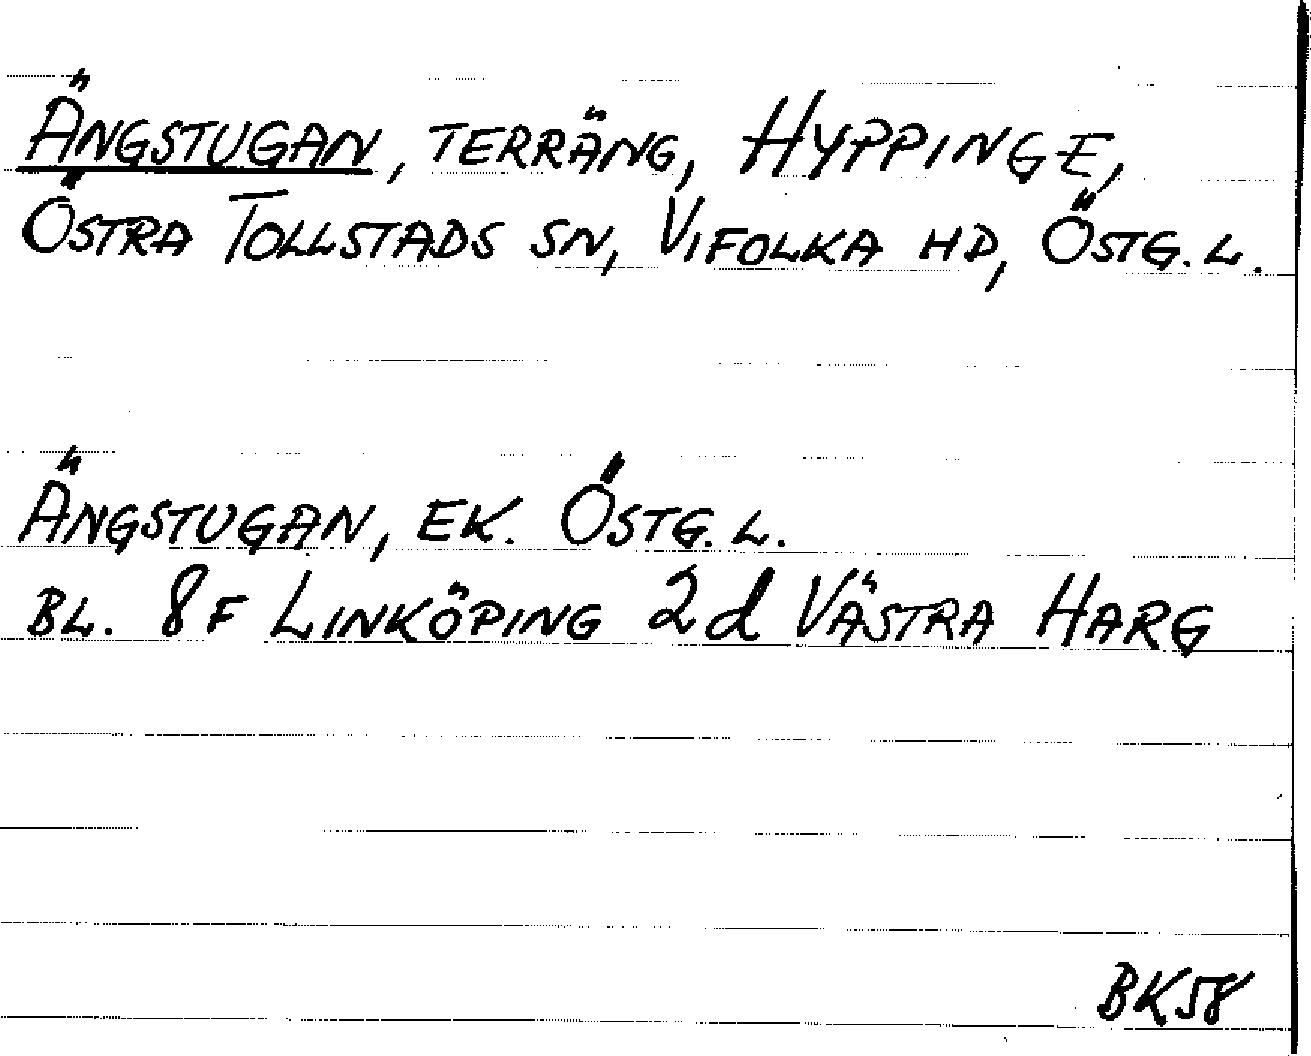 ÄNGSTUGAN, TERRÄNG, HYPPINGE,
ÖSTRA TOLLSTADS SN, VIFOLKA HD, ÖSTG. L.
ÄNGSTUGAN, EK. ÖSTG. L.
BL. 8F LINKÖPING 2d VÄSTRA HARG
BK58